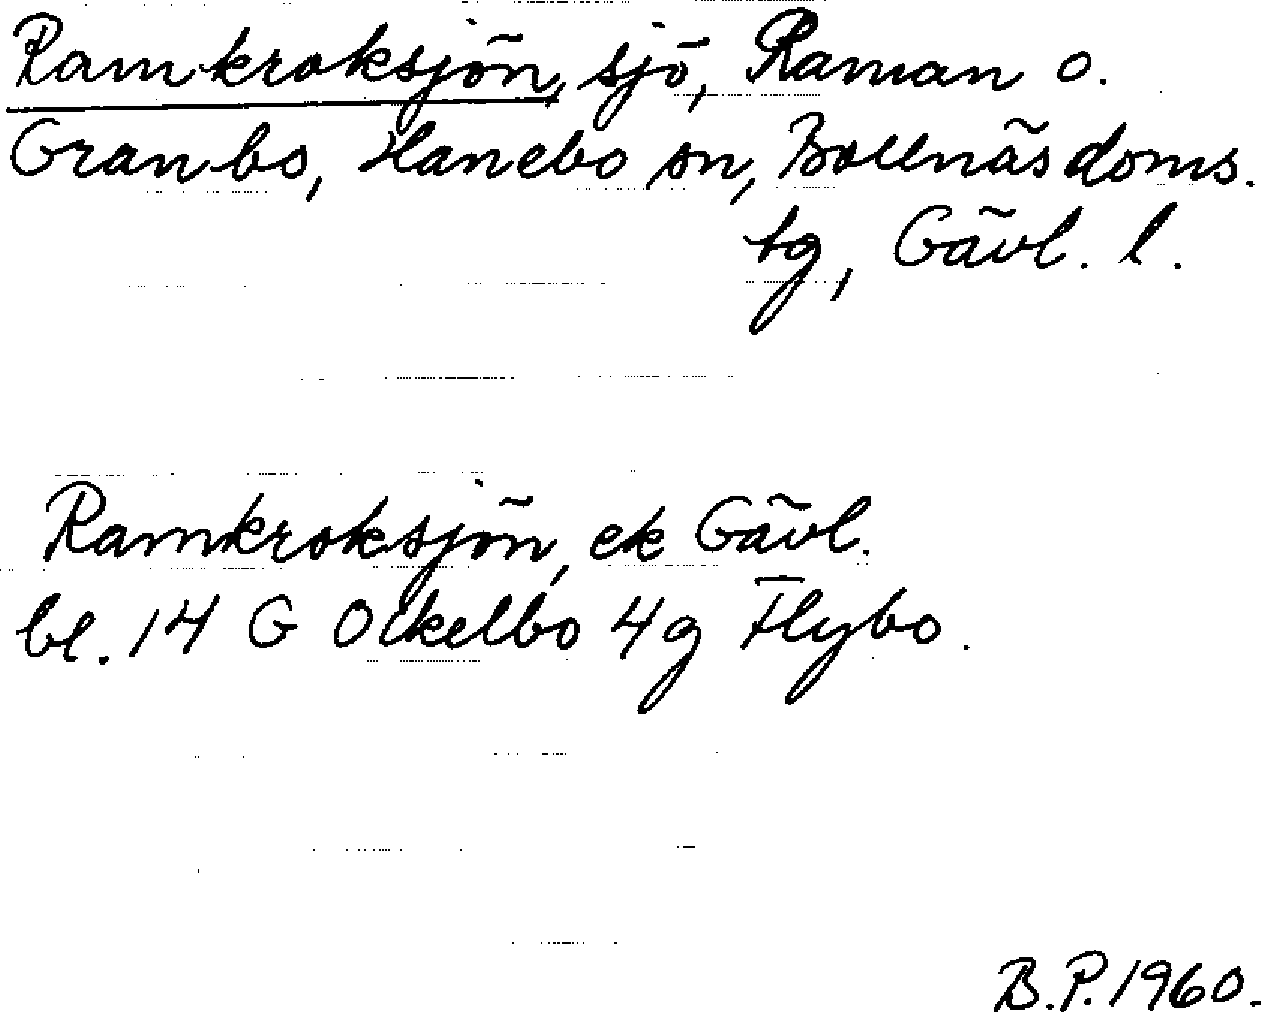 Ramkroksjön, sjö, Raman o.
Granbo, Hanebo sn, Bollnäs doms.
tg, Gävl. l.
Ramkroksjön, ek Gävl.
bl. 14 G Ockelbo 4g Flybo.
B.P. 1960.